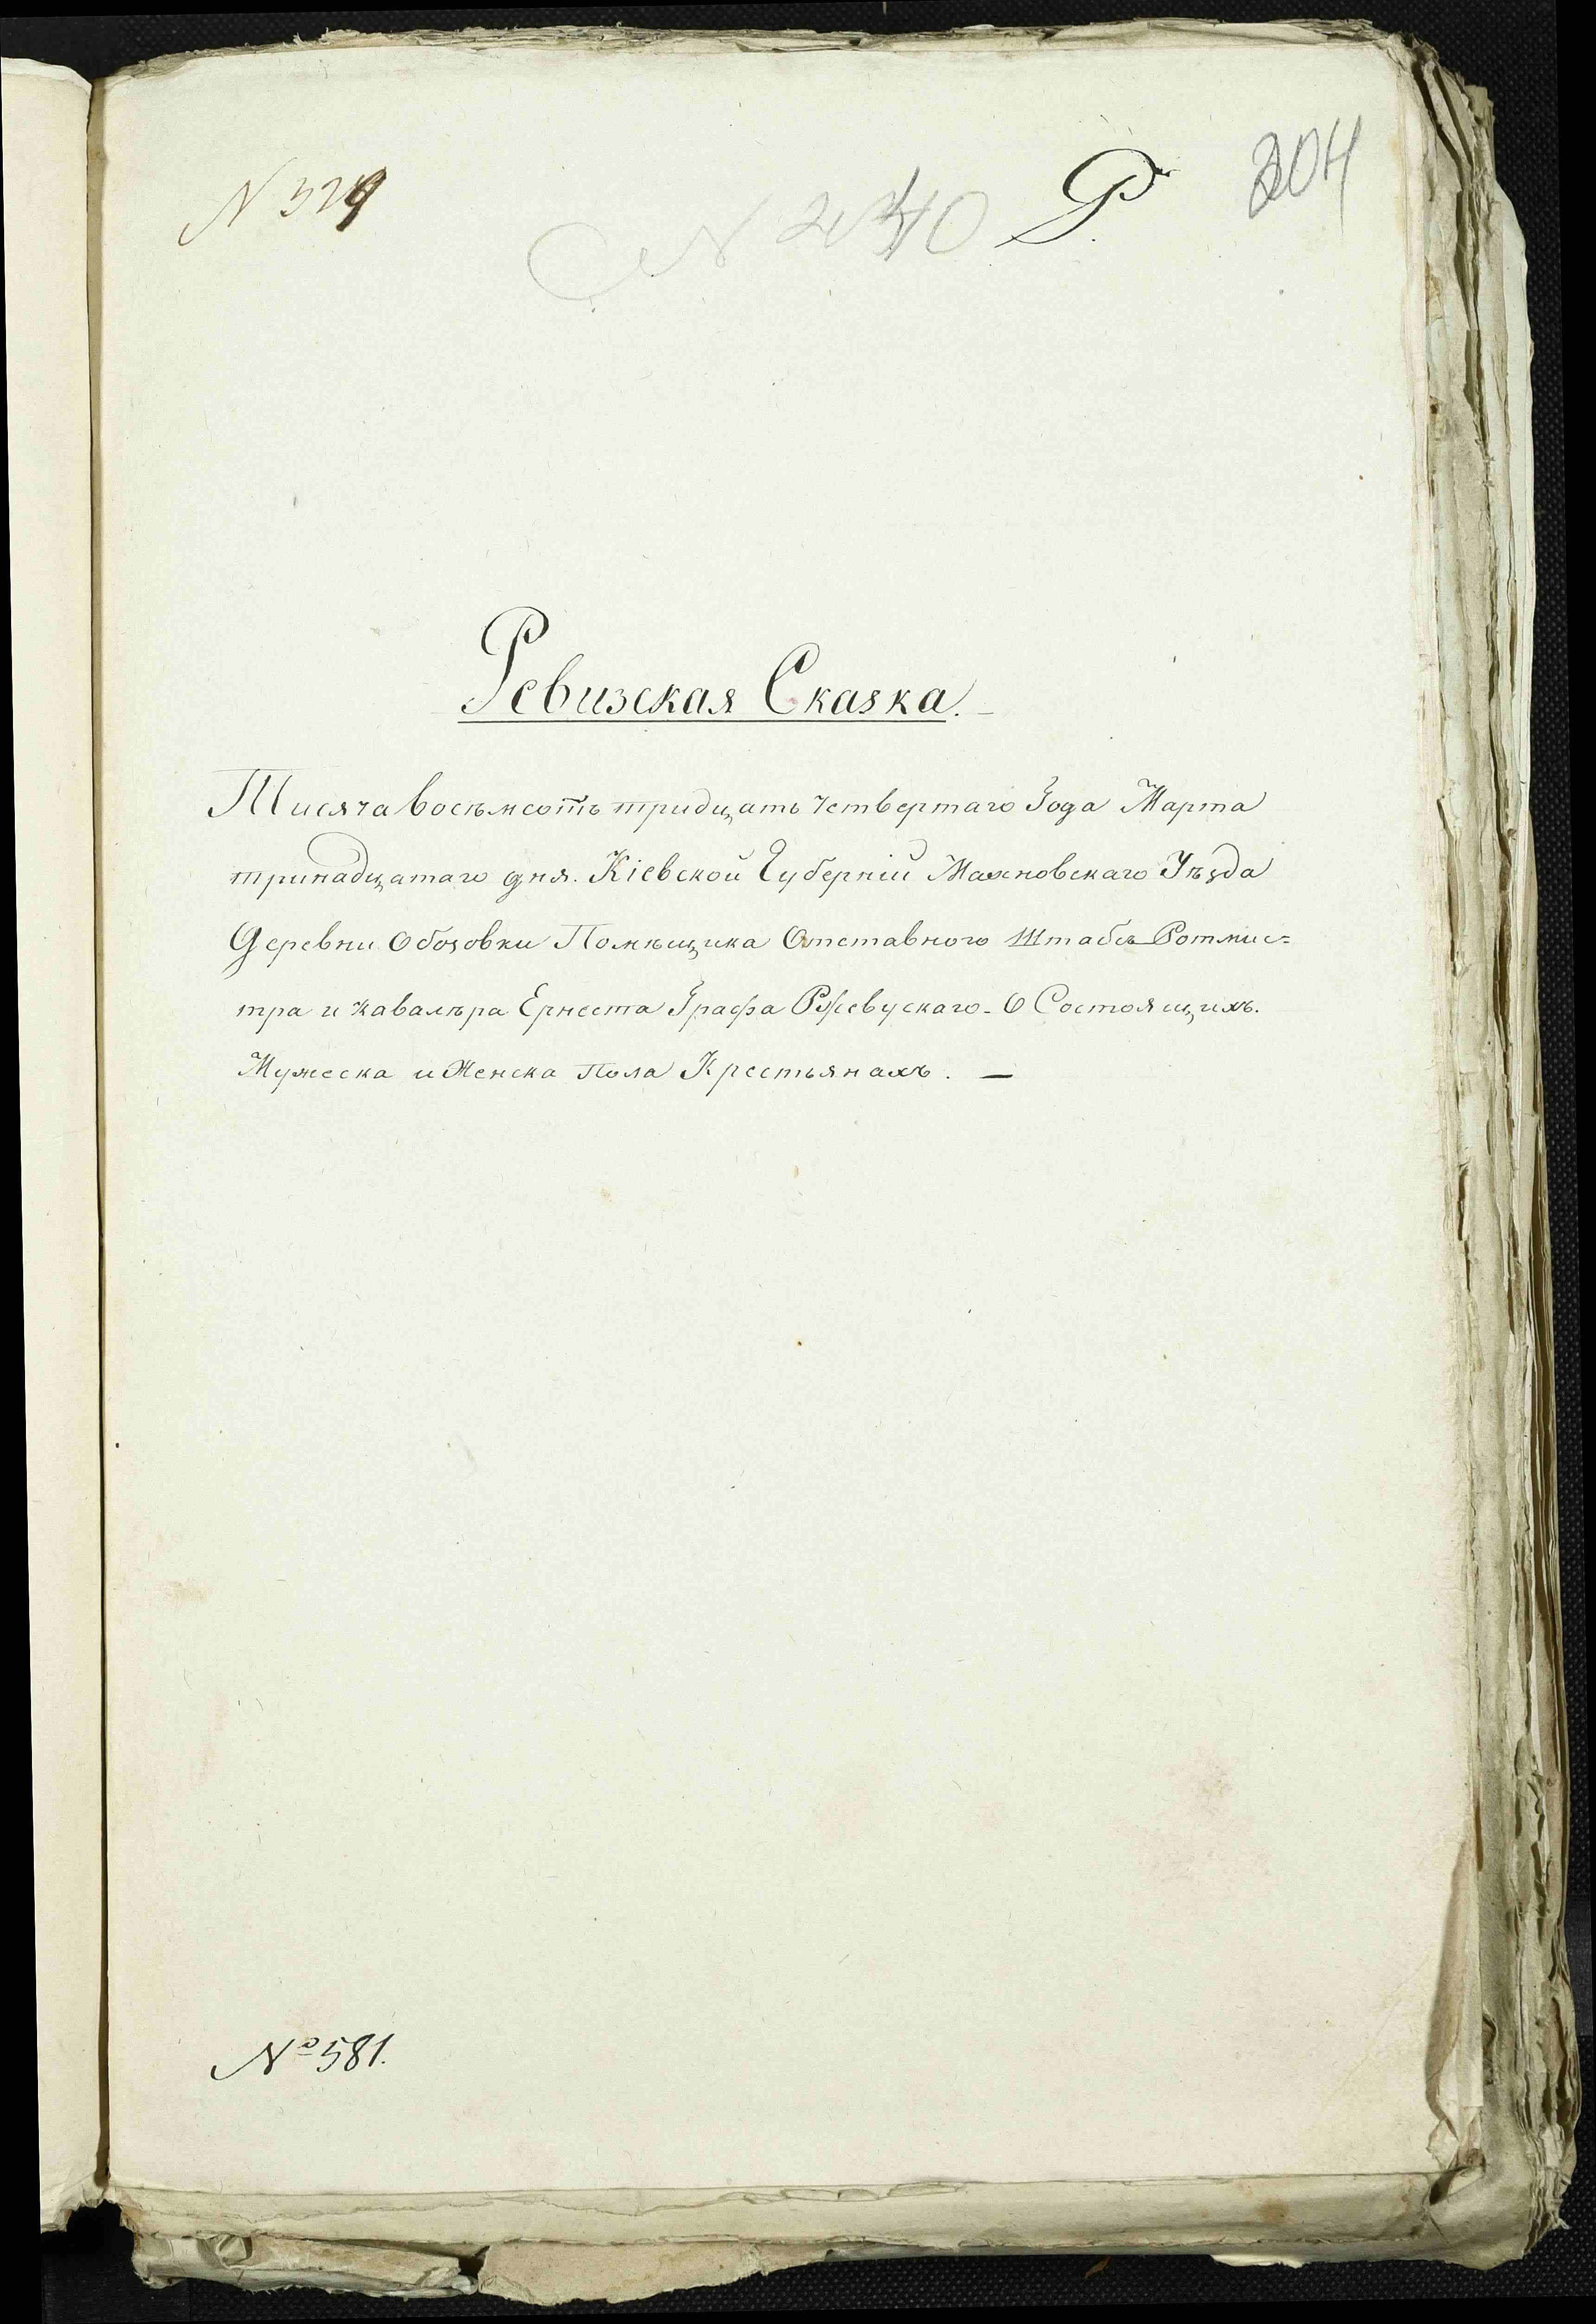 N 329
N 240
Р.
204
Ревизская Сказка.
Тисяча восемсотъ тридцать четвертаго Года Марта
тринадцатаго дня. Кіевской Губерніи Махновскаго Уѣзда
Деревни Обозовки Помѣщика Отставного Штабсъ Ротмис=
тра и Кавалѣра Ернеста Графа Ржевускаго. О Состоящихъ
Мужеска и Женска Пола Крестьянахъ. —
№ 581.